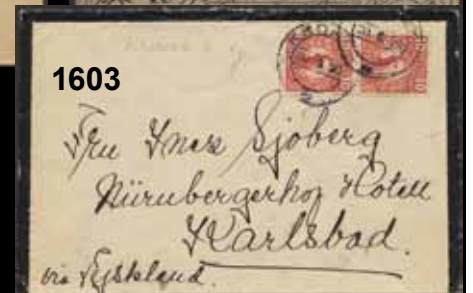 1603
Fru Inez Sjöberg
Nürnbergerhof Hotell
Karlsbad.
via Tyskland.